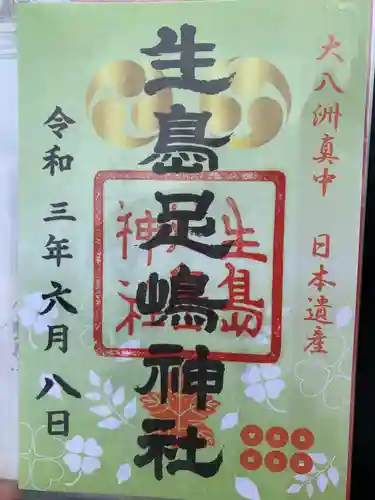 大八洲真中 日本遺産
生島足嶋神社
生島足島神社
令和三年六月八日